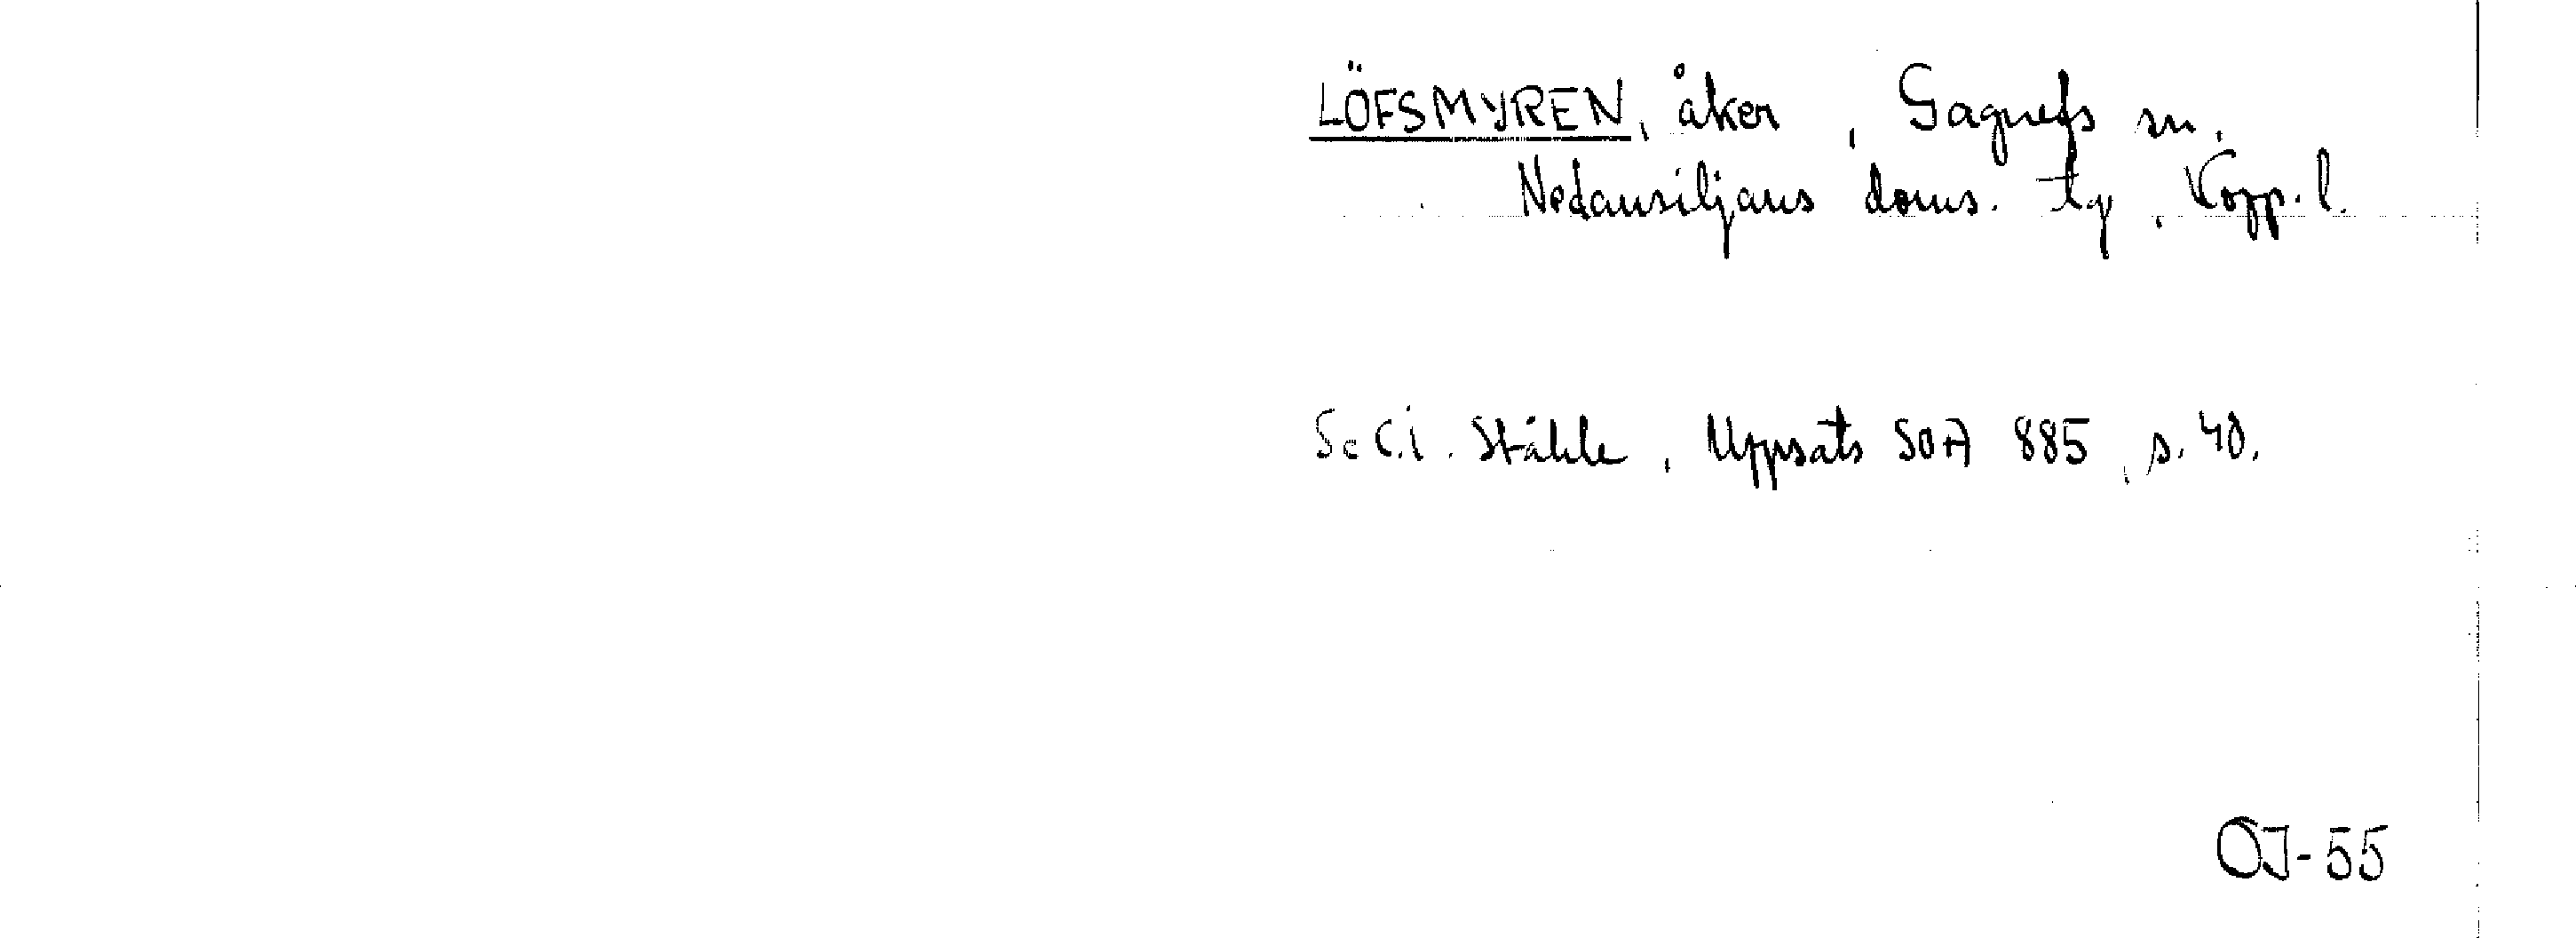 LÖFSMYREN, åker, Gagnefs sn,
Nedansiljans doms. tg, Kopp. l.
Se C.I. Ståhle, Uppsats SOA 885, s. 40.
OJ-55